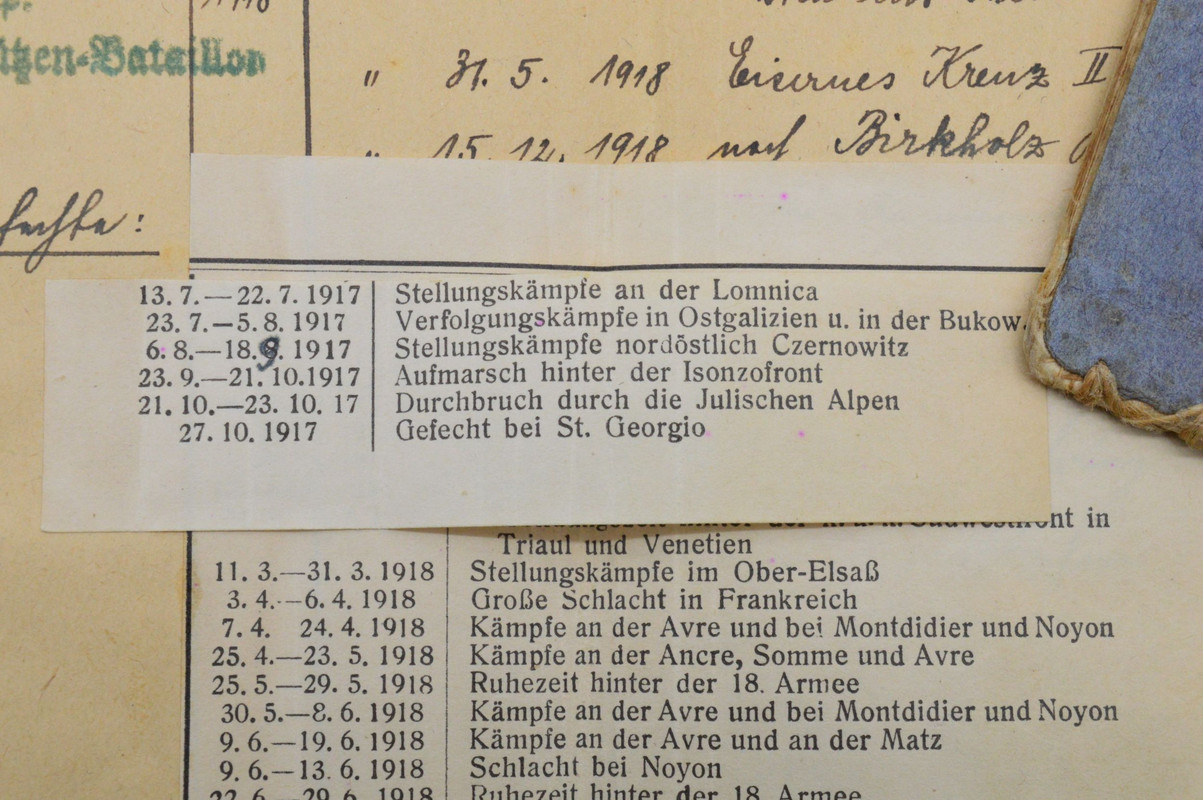 " 31. 5. 1918 Eisernes Kreuz II
" 15. 12. 1918 nach Birkholz
13. 7.—22. 7. 1917 Stellungskämpfe an der Lomnica
23. 7.—5. 8. 1917 Verfolgungskämpfe in Ostgalizien u. in der Bukow.
6. 8.—18. 9. 1917 Stellungskämpfe nordöstlich Czernowitz
23. 9.—21. 10.1917 Aufmarsch hinter der Isonzofront
21. 10.—23. 10. 17 Durchbruch durch die Julischen Alpen
27. 10. 1917 Gefecht bei St. Georgio
hinter der k. u. k. Südwestfront in
Triaul und Venetien
11. 3.—31. 3. 1918 Stellungskämpfe im Ober-Elsaß
3. 4.—6. 4. 1918 Große Schlacht in Frankreich
7. 4. 24. 4. 1918 Kämpfe an der Avre und bei Montdidier und Noyon
25. 4.—23. 5. 1918 Kämpfe an der Ancre, Somme und Avre
25. 5.—29. 5. 1918 Ruhezeit hinter der 18. Armee
30. 5.—8. 6. 1918 Kämpfe an der Avre und bei Montdidier und Noyon
9. 6.—19. 6. 1918 Kämpfe an der Avre und an der Matz
9. 6.—13. 6. 1918 Schlacht bei Noyon
22. 6.—29. 6. 1918 Ruhezeit hinter der 18. Armee